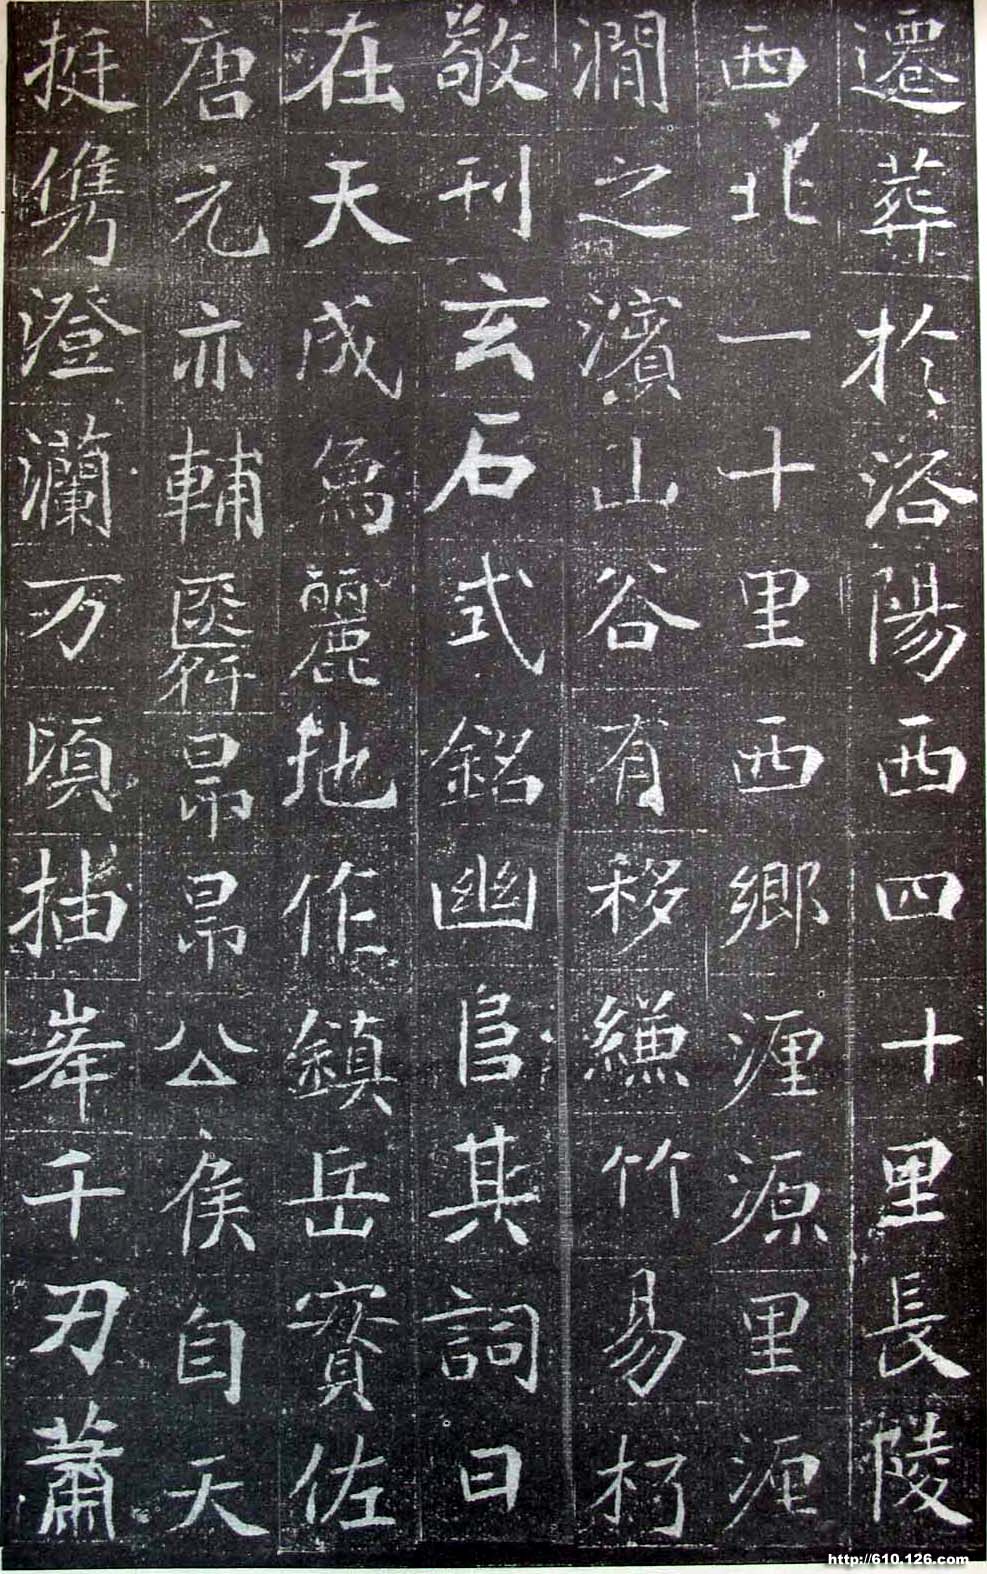 遷葬於洛陽西四十里長陵
西北一十里西鄉瀍源里瀍
澗之濱山谷有移縑竹易朽
敬刊玄石式銘幽扃其詞曰
在天成為麗地作鎮岳實佐
唐元亦輔毉昴昴公侯自天
挺雋澄瀾万頃抽峯千刃蕭
http://610.126.com